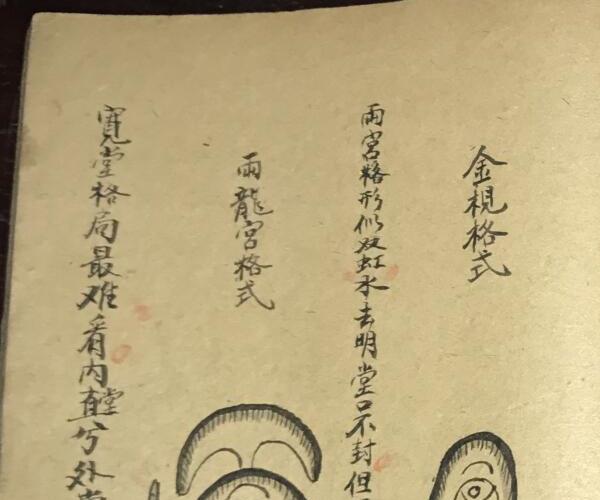 金規格式
兩宮格形似双虹水去明堂口不封但
兩龍宮格式
寬堂格局最难看内直堂兮外